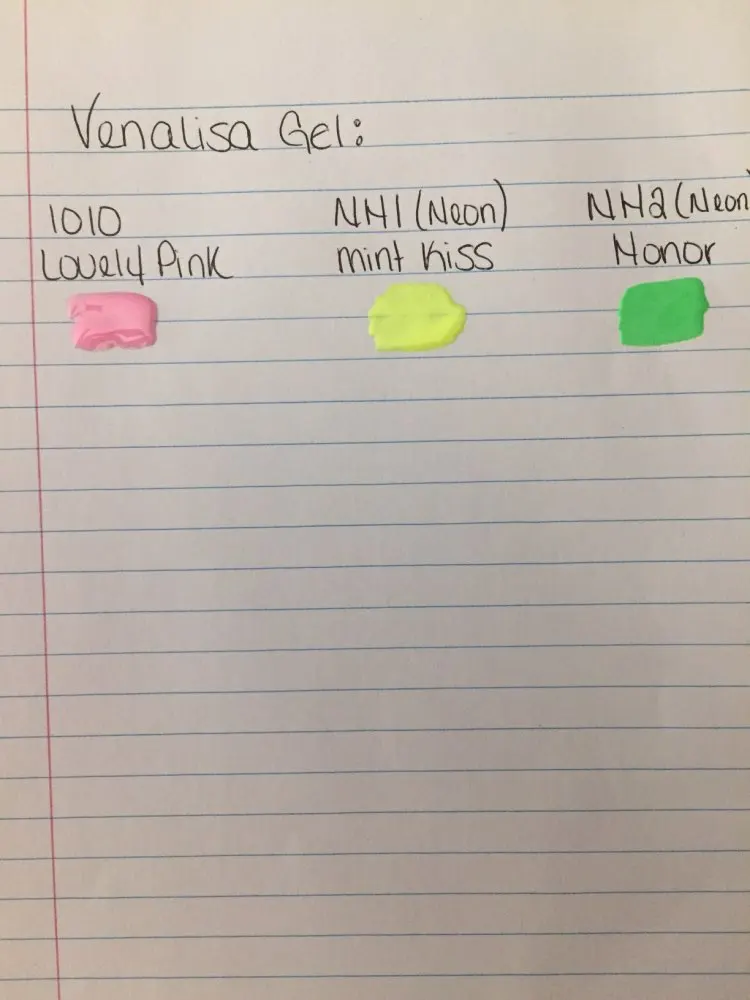 Venalisa Gel:
1010
Lovely Pink
NH1 (Neon)
mint Kiss
NH2 (Neon)
Honor